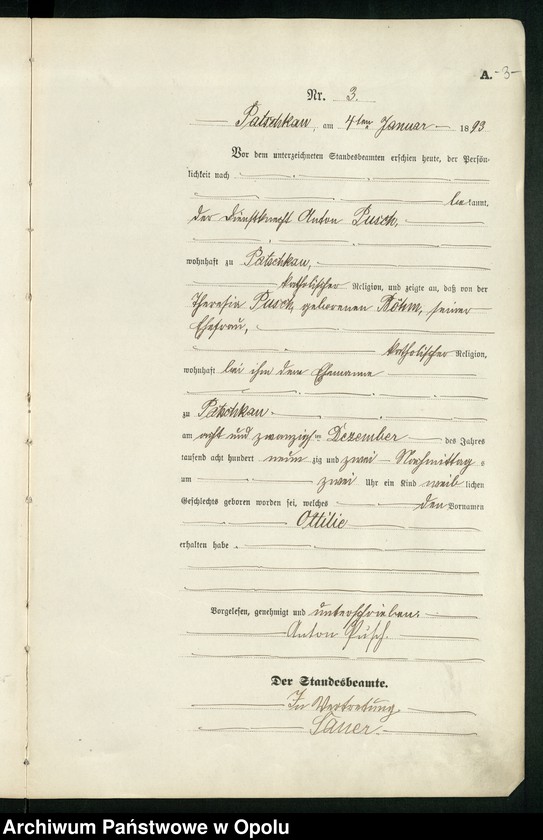 A. -3-
Nr. 3.
Patschkau, am 4ten Januar 1893
Vor dem unterzeichneten Standesbeamten erschien heute, der Persön-
lichkeit nach
bekannt,
der Dienstknecht Anton Pusch,
wohnhaft zu Patschkau,
katholischer Religion, und zeigte an, daß von der
Theresia Pusch, geborenen Böhm, seiner
Ehefrau,
katholischer Religion,
wohnhaft bei ihm dem Ehemanne
zu Patschkau
am acht und zwanzigsten Dezember des Jahres
tausend acht hundert neunzig und zwei Nachmittag
um zwei Uhr ein Kind weiblichen
Geschlechts geboren worden sei, welches den Vornamen
Ottilie
erhalten habe.
Vorgelesen, genehmigt und unterschrieben.
Anton Pusch.
Der Standesbeamte.
In Vertretung
Sauer.
Archiwum Państwowe w Opolu